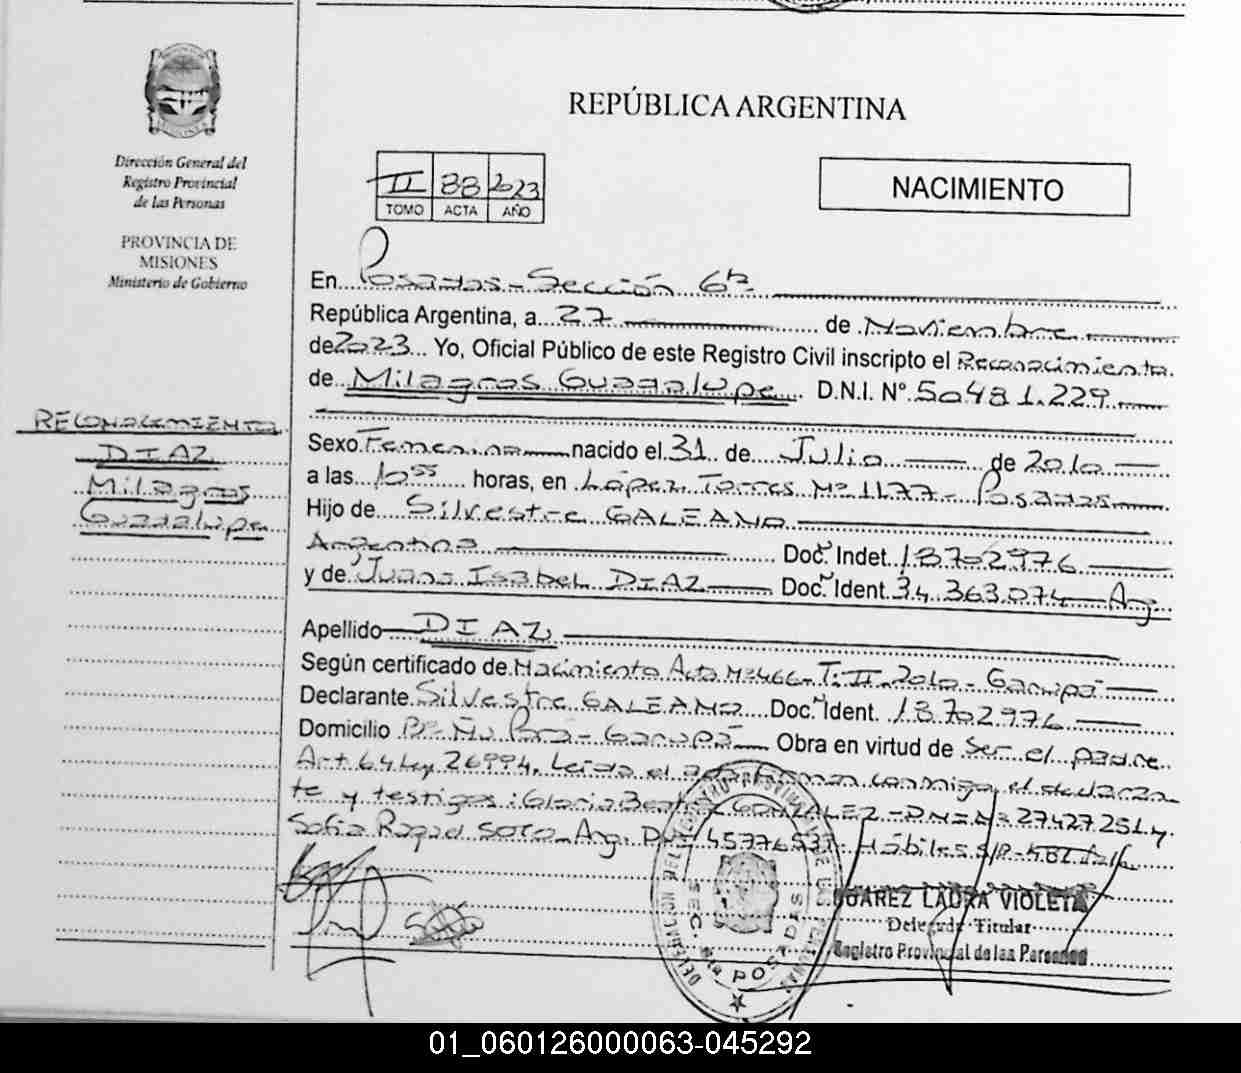 REPÚBLICA ARGENTINA
Dirección General del
Registro Provincial
de las Personas
PROVINCIA DE
MISIONES
Ministerio de Gobierno
II 88 2023
TOMO ACTA AÑO
NACIMIENTO
En Posadas - Sección 6ta
República Argentina, a 27 de Noviembre
de 2023 Yo, Oficial Público de este Registro Civil inscripto el Reconocimiento
de Milagros Guadalupe D.N.I. Nº 50481.229
RECONOCIMIENTO
DIAZ
Milagros
Guadalupe
Sexo Femenino nacido el 31 de Julio de 2010
a las 10 55 horas, en López Torres Nº 1177 - Posadas
Hijo de Silvestre GALEANO
Argentino Doc. Indet. 18702976
y de Juana Isabel DIAZ Doc. Ident. 34.363.074 Arg.
Apellido DIAZ
Según certificado de Nacimiento Acta Nº 466 - T: II - 2010 - Garupá
Declarante Silvestre GALEANO Doc. Ident. 18.702976
Domicilio Bº Ñu Porá - Garupá Obra en virtud de Ser el padre
Art 64 Ley 26994. Leida el acta firman conmigo el declaran-
te y testigos: Gloria Beatriz GONZALEZ - DNI Nº 27427251 y
Sofia Raquel SOTO - Arg. DNI 45776537 - Hábiles
SUAREZ LAURA VIOLETA
Delegada Titular
Registro Provincial de las Personas
SEC. 6ta POSADAS
01_060126000063-045292